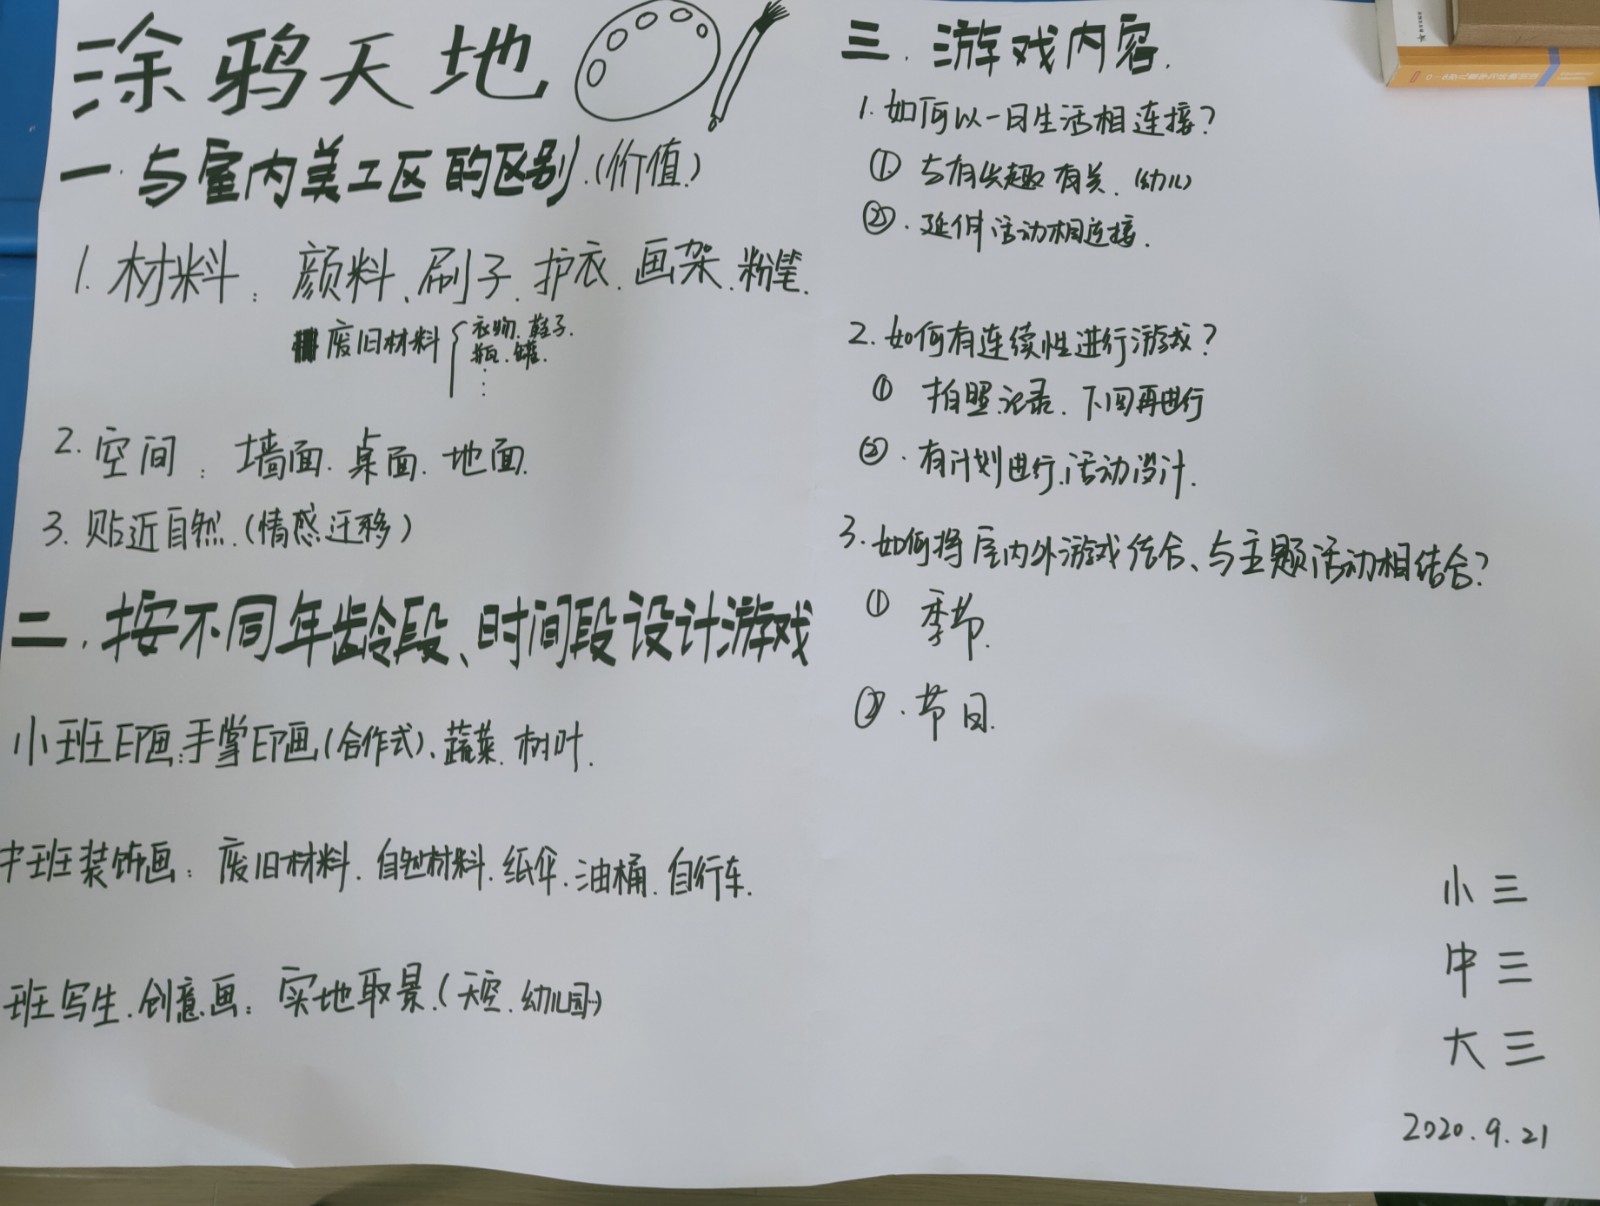 涂鸦天地
一.与室内美工区的区别.(价值.)
1.材料：颜料、刷子.护衣.画架.粉笔.
废旧材料{衣物.鞋子.
瓶.罐.
⋮
2.空间：墙面.桌面.地面.
3.贴近自然.(情感迁移)
二.按不同年龄段、时间段设计游戏
小班印画:手掌印画(合作式)、蔬菜.树叶.
中班装饰画：废旧材料.自然材料.纸伞.油桶.自行车.
班写生.创意画：实地取景.(天空.幼儿园…)
三.游戏内容.
1.如何以一日生活相连接？
①与有兴趣有关.(幼儿)
②.延伸活动相连接.
2.如何有连续性进行游戏？
①拍照.记录.下回再进行
②.有计划进行.活动设计.
3.如何将室内外游戏结合、与主题活动相结合？
①季节.
②.节日.
小三
中三
大三
2020.9.21